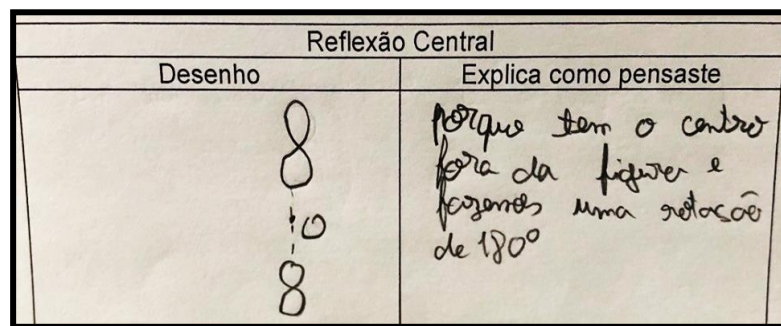 Reflexão Central
Desenho
Explica como pensaste
8
O
8
porque tem o centro
fora da figura e
fazemos uma rotasão
de 180º